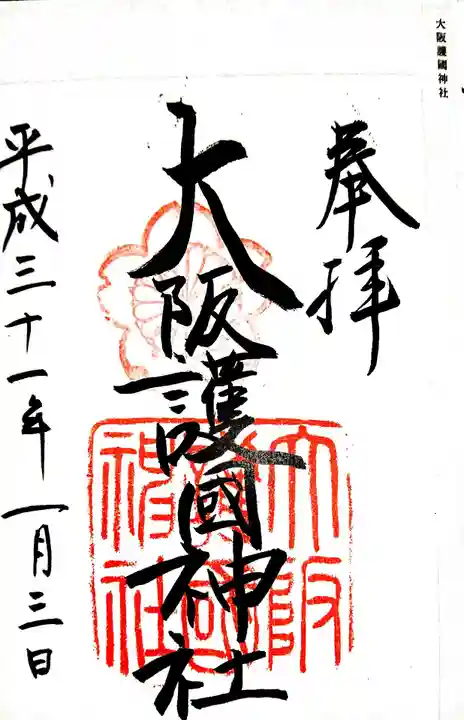 大阪護國神社
奉拝
大阪護國神社
大阪護國神社
平成三十一年一月三日